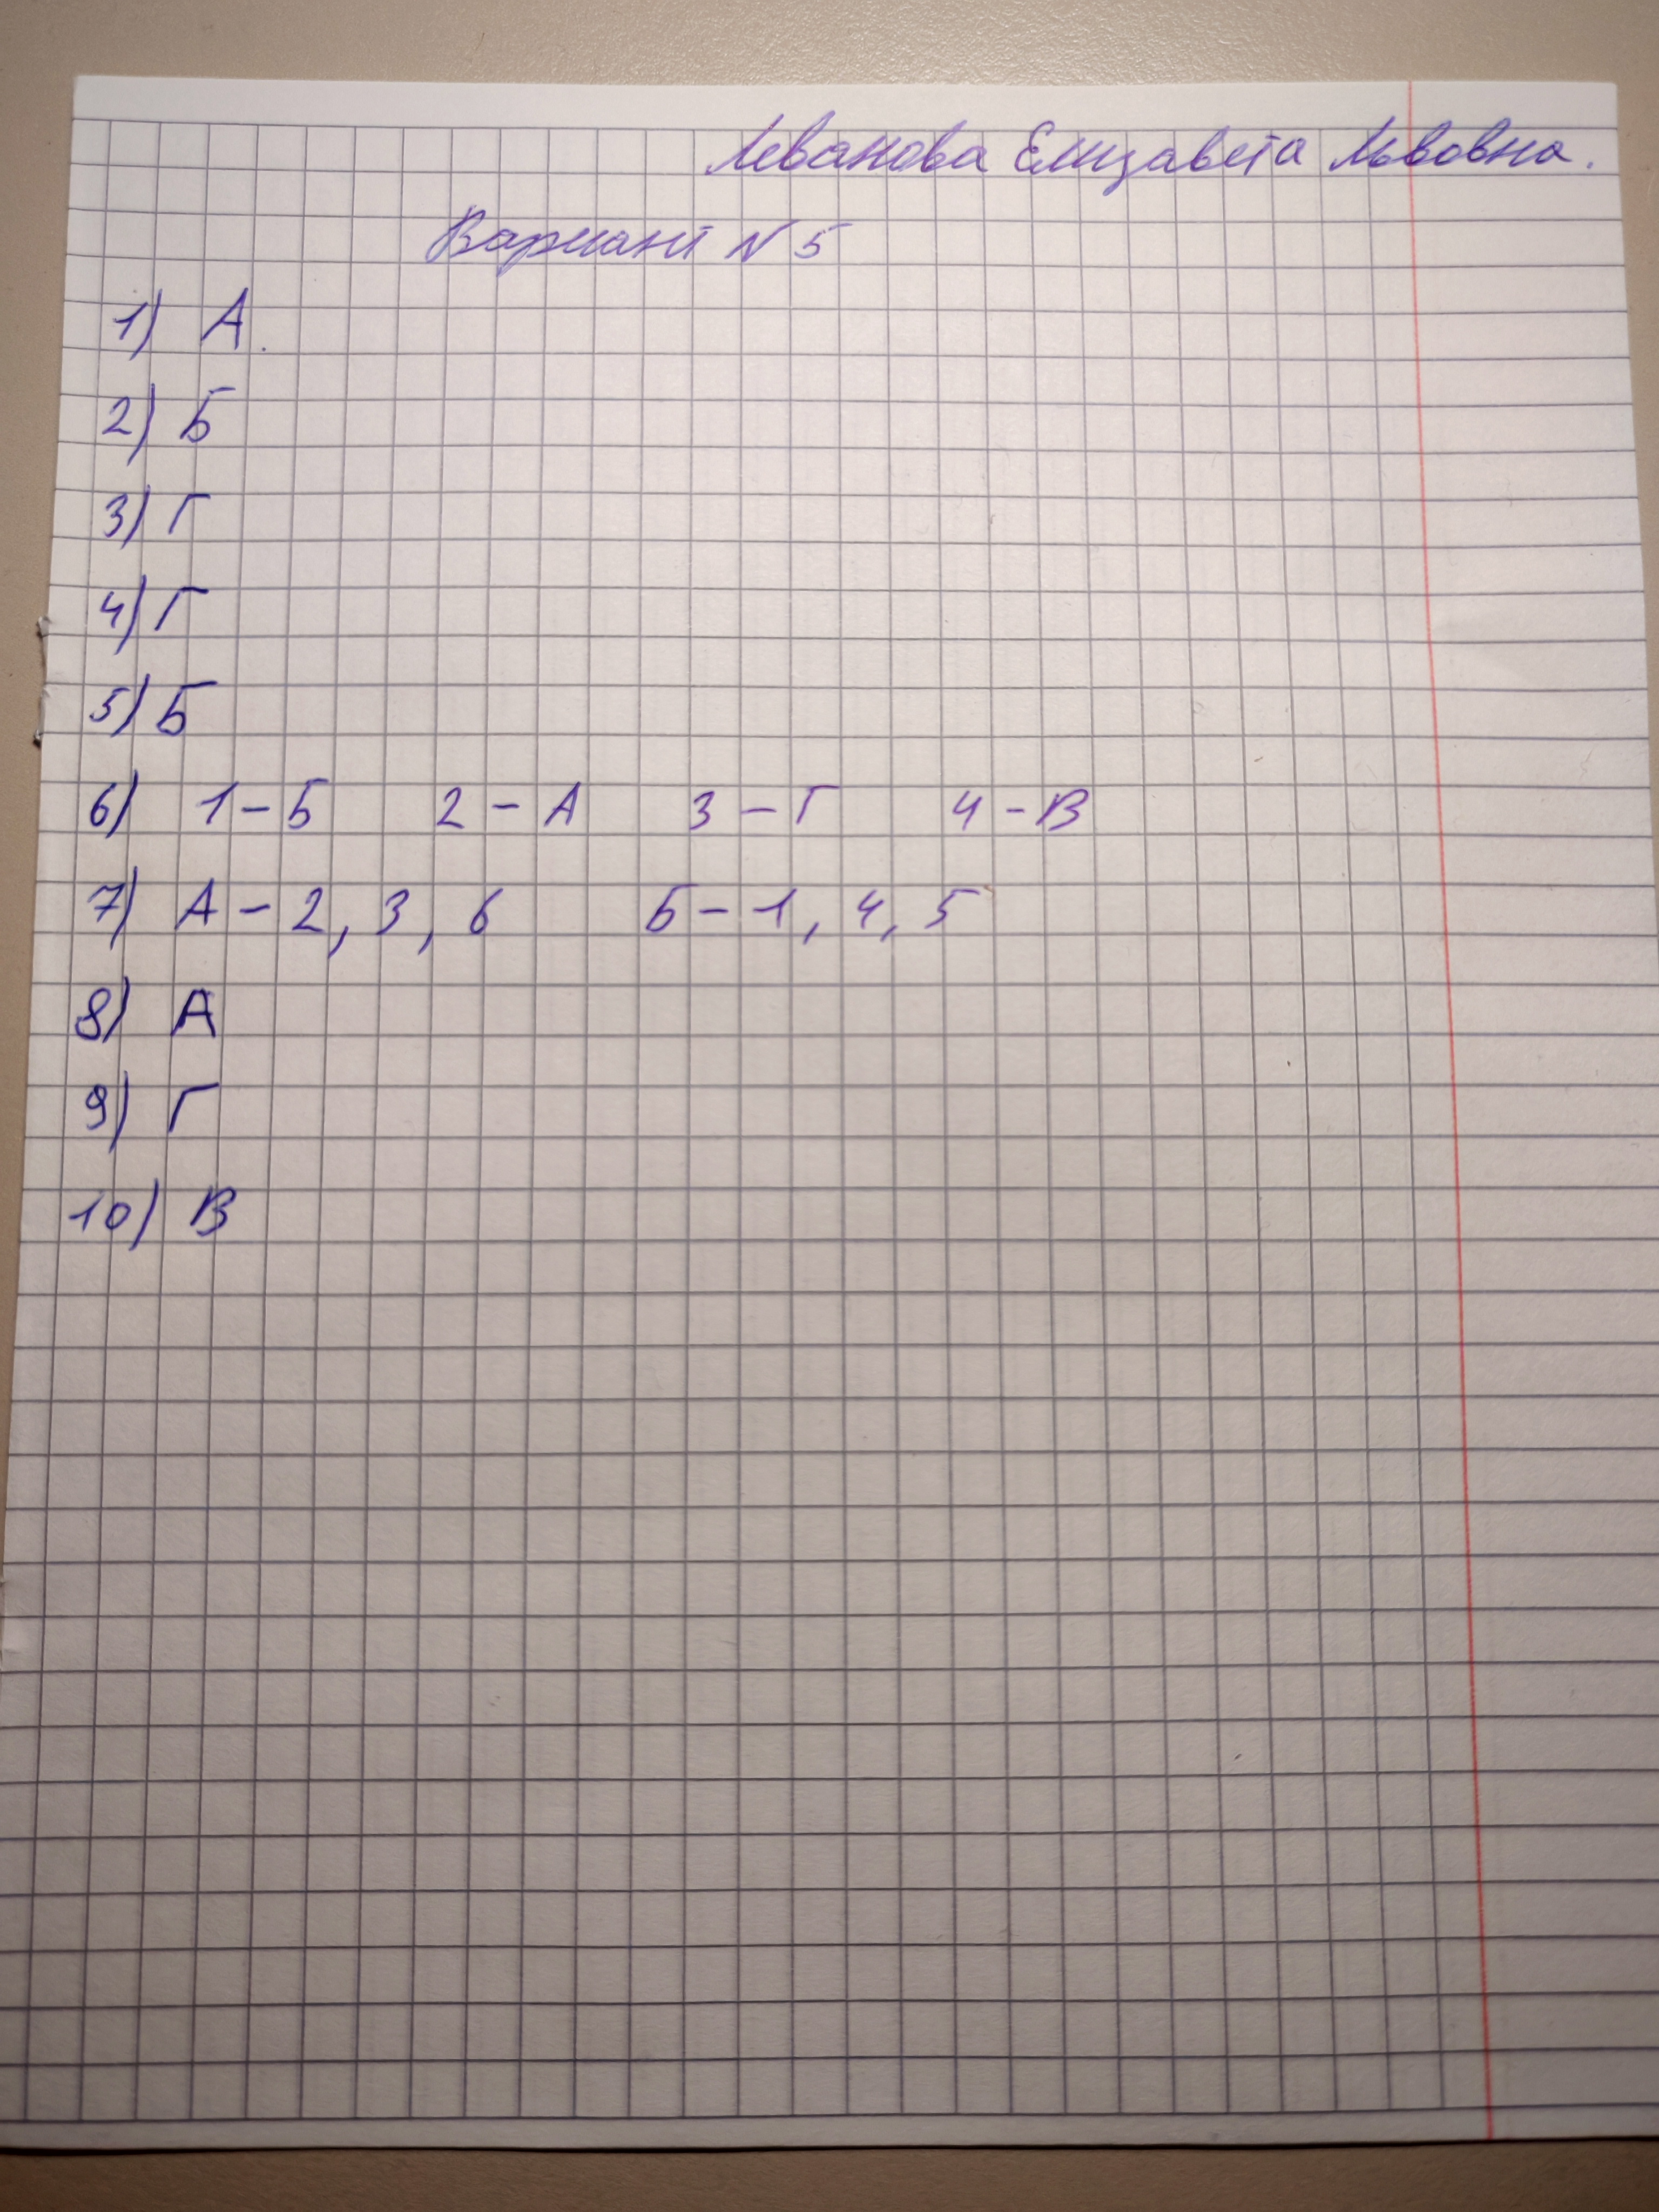 Леванова Елизавета Львовна.
Вариант N 5
1) А.
2) Б
3) Г
4) Г
5) Б
6) 1 - Б 2 - А 3 - Г 4 - В
7) А - 2, 3, 6 Б - 1, 4, 5
8) А
9) Г
10) В